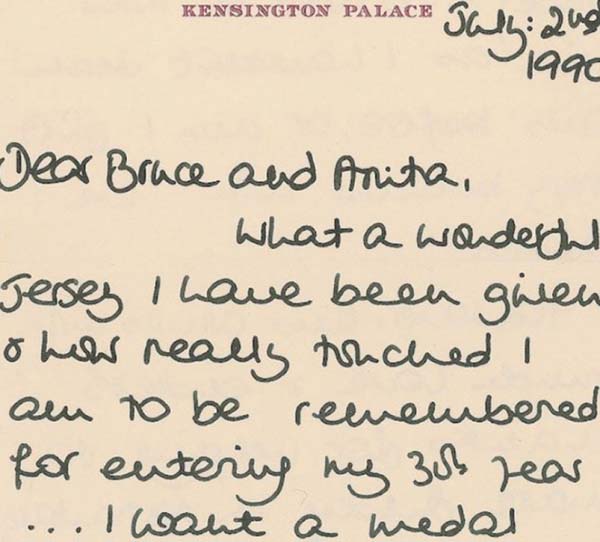 KENSINGTON PALACE
July: 2nd
1990
Dear Bruce and Anita,
What a wonderful
Jersey I have been given
& how really touched I
am to be remembered
for entering my 30th year
... I want a medal